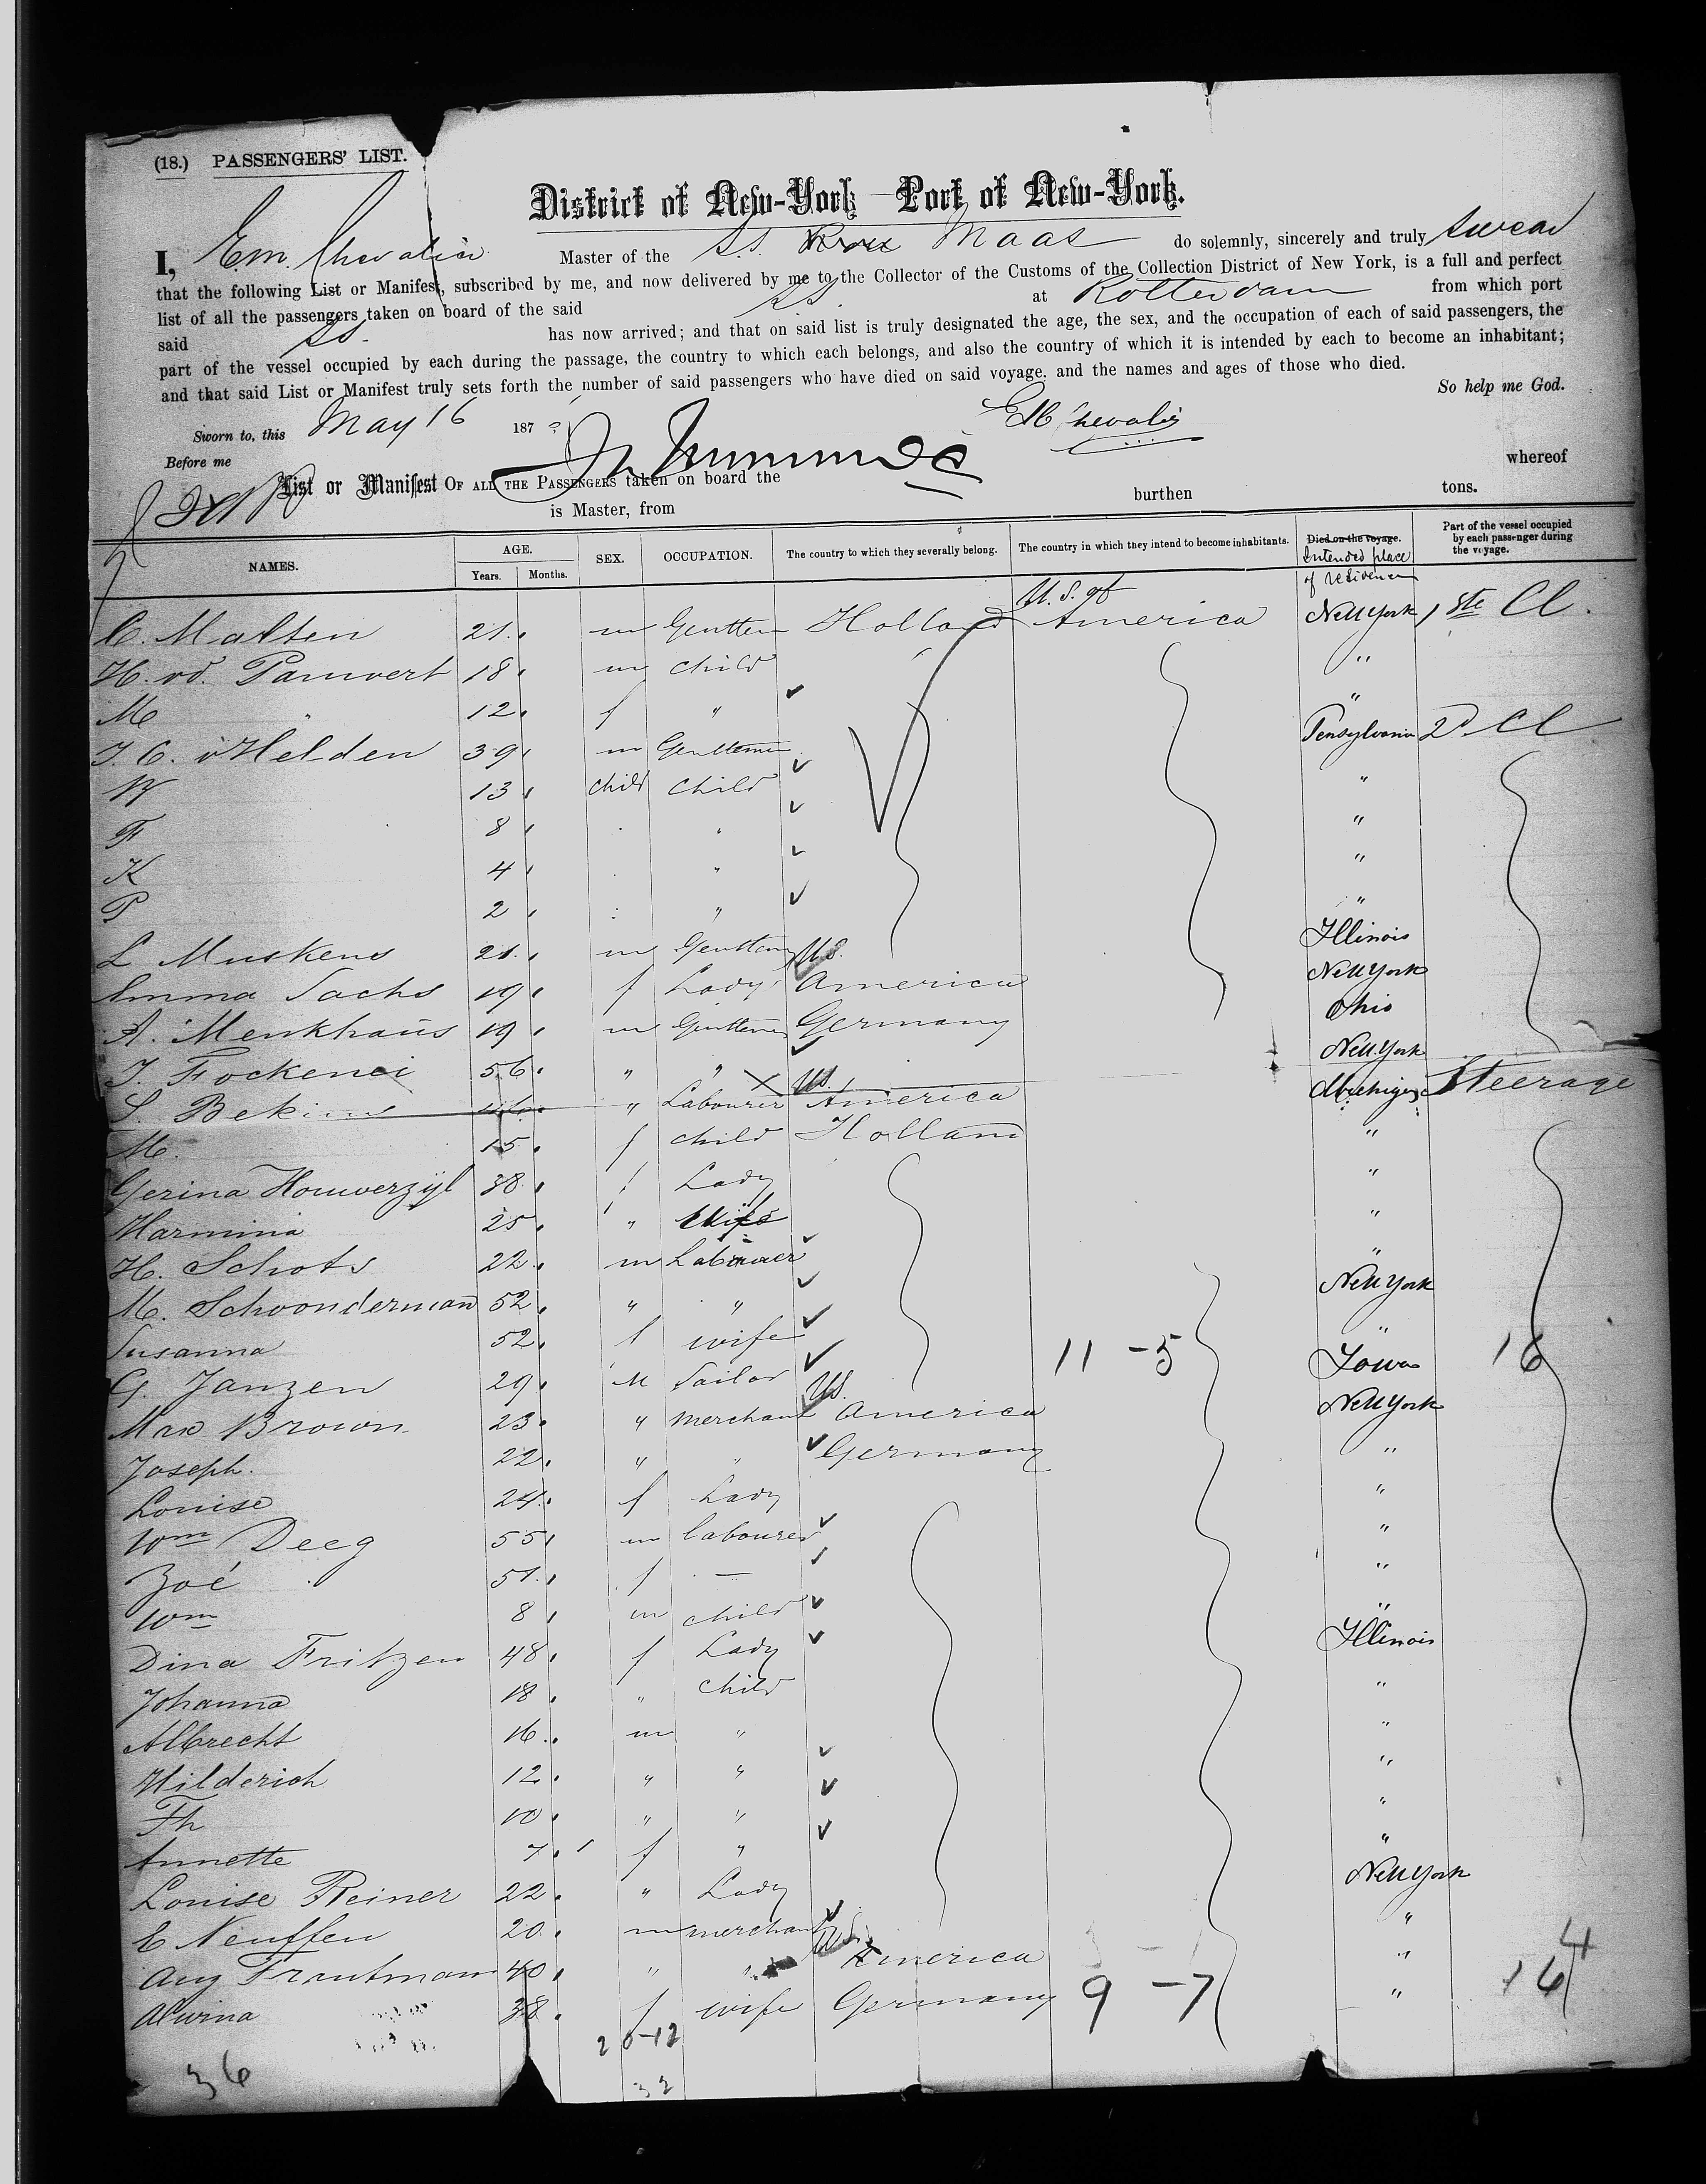 (18.) PASSENGERS' LIST.
District of New-York Port of New-York.
I, E.M. Chevalier Master of the S.S. Maas do solemnly, sincerely and truly swear
that the following List or Manifest, subscribed by me, and now delivered by me to the Collector of the Customs of the Collection District of New York, is a full and perfect
list of all the passengers taken on board of the said SS. at Rotterdam from which port
said SS. has now arrived; and that on said list is truly designated the age, the sex, and the occupation of each of said passengers, the
part of the vessel occupied by each during the passage, the country to which each belongs, and also the country of which it is intended by each to become an inhabitant;
and that said List or Manifest truly sets forth the number of said passengers who have died on said voyage. and the names and ages of those who died.
So help me God.
Sworn to, this May 16 187 EM Chevalier
Before me
List or Manifest OF ALL THE PASSENGERS taken on board the whereof
is Master, from burthen tons.
NAMES. AGE. Years. Months. SEX. OCCUPATION. The country to which they severally belong. The country in which they intend to become inhabitants. Died on the voyage. Intended place of residence Part of the vessel occupied by each passenger during the voyage.
C. Malten 21. m Gentlem Holland U.S. of America New York 1ste Cl.
H. vd. Pauwert 18 m child " "
M " 12 f " "
J. C. v Helden 39 m Gentleman Pensylvania 2d. Cl
W 13 child child "
F 8 " "
K 4 " "
P 2 " "
L Muskens 21. m Gentlem Illinois
Emma Sachs 19 f Lady U.S. America New York
A. Menkhaüs 19 m Gentlem Germany Ohio
J. Fockenei 56 " " New York
S. Bekius " Labourer U.S. America Michigan Steerage
M. 15 f child Holland "
Gerina Houwerzijl 38 f Lady "
Harmina 25 " Wife "
H. Schots 22 m Labourer "
M. Schoonderman 52 " " New York
Susanna 52 f wife "
G. Janzen 29 M Sailor 11 - 5 Iowa 16
Max Brown 23 " merchant U.S. America New York
Joseph. 22 " " Germany "
Louise 24 f Lady "
Wm Deeg 55 m labourer "
Zoé 51 f — "
Wm 8 m child "
Dina Fritzen 48 f Lady Illinois
Johanna 18 " child "
Albrecht 16 m " "
Hilderich 12 " " "
Th 10 " " "
Annette 7 f " "
Louise Reiner 22 " Lady New York
E Neuffen 20 m merchant "
Aug Trautmann 40 " " U.S. America "
Alwina 38 f wife Germany 9 - 7 " 16 4
20-12
36
32